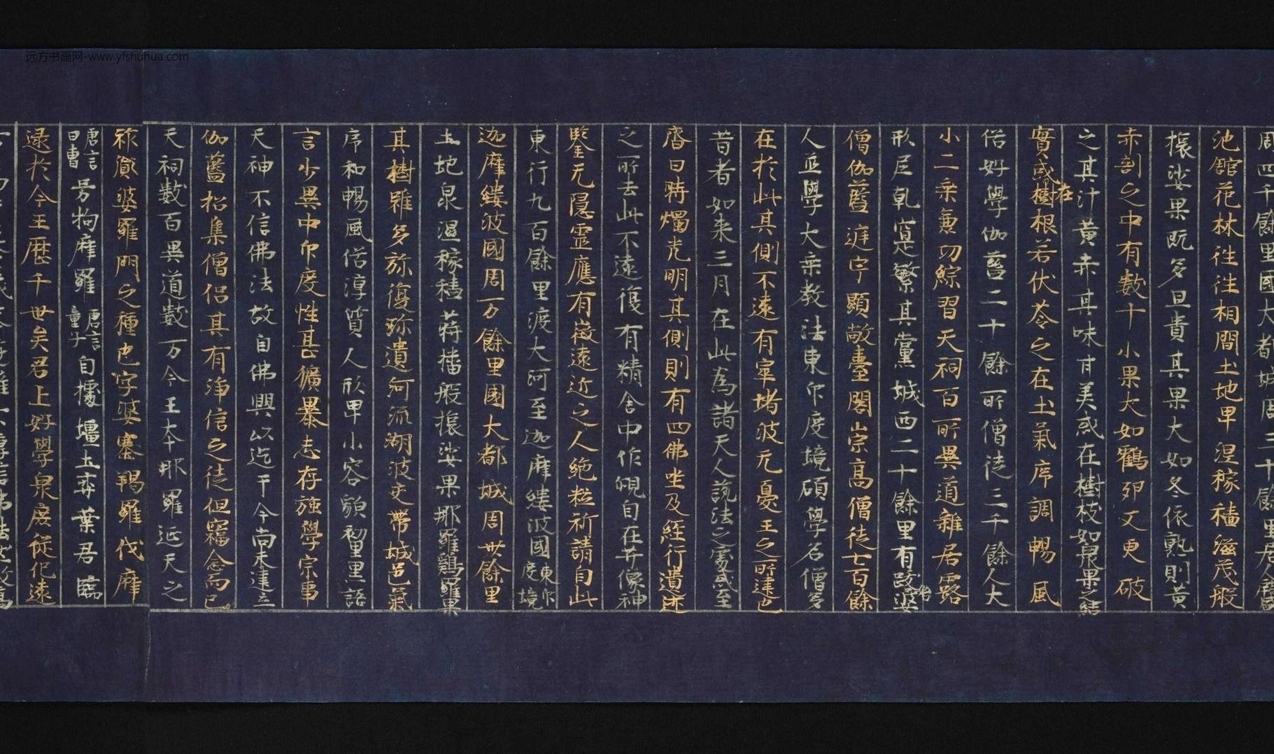 周四千餘里國大都城周三十餘里居人殷盛
池館花林往往相間土地卑濕稼穡滋茂般
橠娑果既多且貴其果大如冬依熟則黃
赤剖之中有數十小果大如鶴卵又更破
之其汁黃赤其味甘美或在樹枝如衆果之結
實或在樹根若伏苓之在土氣序調暢風
俗好學伽藍二十餘所僧徒三千餘人大
小二乘兼功綜習天祠百所異道雜居露
形尼乾寔繁其黨城西二十餘里有跋始婆
僧伽藍庭宇顯敞臺閣崇高僧徒七百餘
人並學大乘教法東印度境碩學名僧多
在於此其側不遠有窣堵波无憂王之所建也
昔者如來三月在此為諸天人說法之處或至
齋日時燭光明其側則有四佛坐及經行遺迹
之所去此不遠復有精舍中作觀自在菩薩像神
鑒无隱靈應有徵遠近之人絶粒祈請自此
東行九百餘里渡大河至迦摩縷波國東印度境
迦摩縷波國周万餘里國大都城周卅餘里
土地泉濕稼穡蒔播般橠娑果那羅鷄羅果
其樹雖多弥復珍遺河流湖波交帶城邑氣
序和暢風俗淳質人形卑小容貌黧黑語
言少異中印度性甚獷暴志存強學宗事
天神不信佛法故自佛興以迄于今尚未建立
伽藍招集僧侶其有淨信之徒但竊念而已
天祠數百異道數万今王本那羅延天之
祚胤婆羅門之種也字婆塞羯羅伐摩
唐言日胄号拘摩羅唐言童子自據壃土弈葉君臨
逮於今王歷千世矣君上好學衆庶從化遠
远方书画网-www.yfshuhua.com